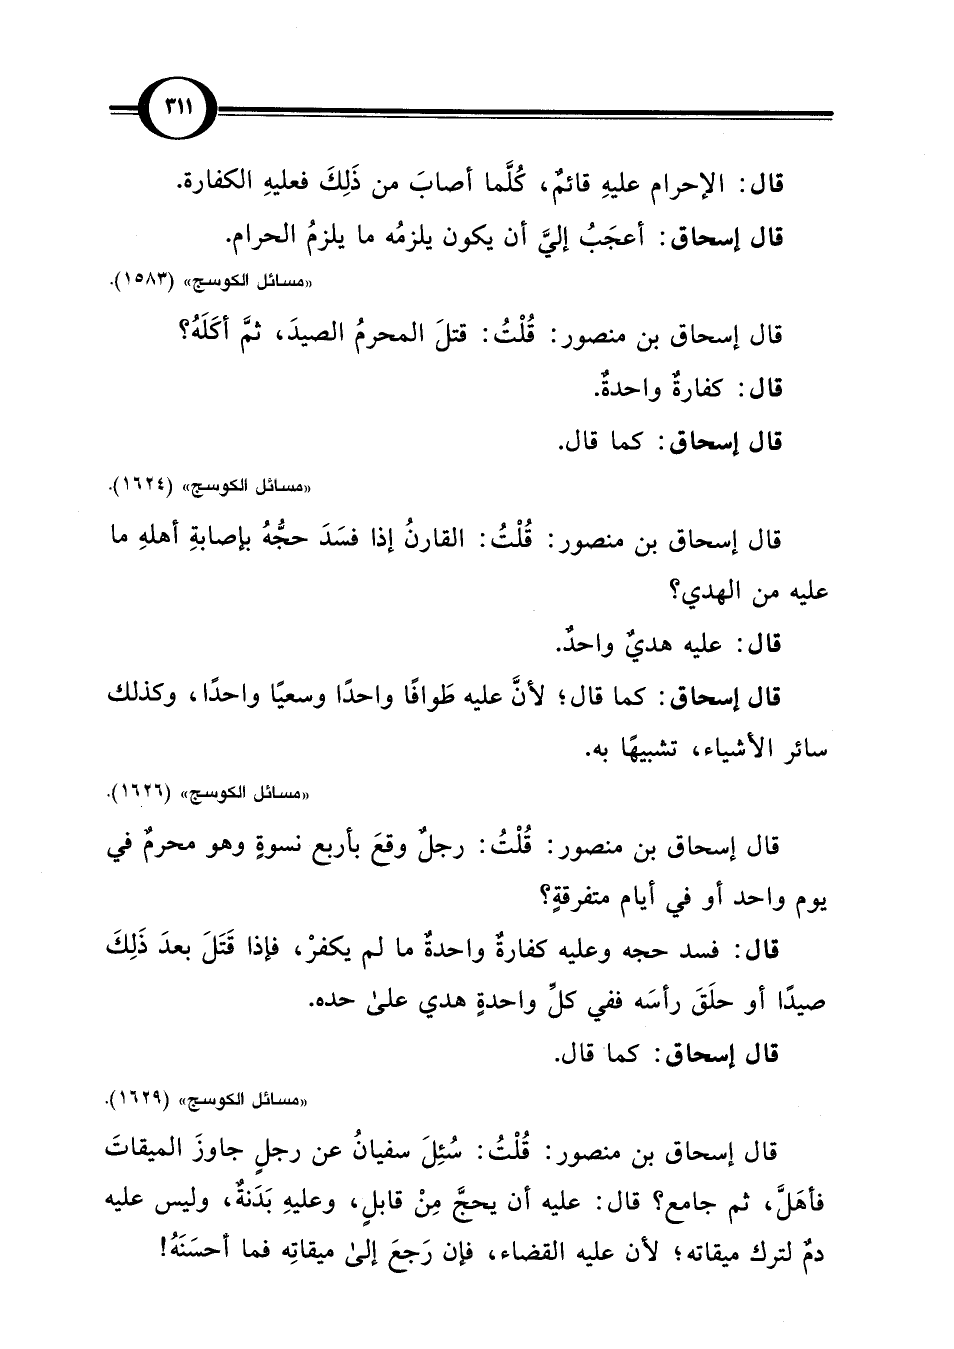 ٣١١
قال: الإحرام عليهِ قائمٌ، كُلَّما أصابَ من ذَلِكَ فعليهِ الكفارة.
قال إسحاق: أعجَبُ إليَّ أن يكون يلزمُه ما يلزمُ الحرام.
«مسائل الكوسج» (١٥٨٣).
قال إسحاق بن منصور: قُلْتُ: قتلَ المحرمُ الصيدَ، ثمَّ أكَلَهُ؟
قال: كفارةٌ واحدةٌ.
قال إسحاق: كما قال.
«مسائل الكوسج» (١٦٢٤).
قال إسحاق بن منصور: قُلْتُ: القارنُ إذا فسَدَ حجُّهُ بإصابةِ أهلهِ ما
عليه من الهدي؟
قال: عليه هديٌ واحدٌ.
قال إسحاق: كما قال؛ لأنَّ عليه طَوافًا واحدًا وسعيًا واحدًا، وكذلك
سائر الأشياء، تشبيهًا به.
«مسائل الكوسج» (١٦٢٦).
قال إسحاق بن منصور: قُلْتُ: رجلٌ وقعَ بأربع نسوةٍ وهو محرمٌ في
يوم واحد أو في أيام متفرقةٍ؟
قال: فسد حجه وعليه كفارةٌ واحدةٌ ما لم يكفرْ، فإذا قَتَلَ بعدَ ذَلِكَ
صيدًا أو حلَقَ رأسَه ففي كلِّ واحدةٍ هدي علىٰ حده.
قال إسحاق: كما قال.
«مسائل الكوسج» (١٦٢٩).
قال إسحاق بن منصور: قُلْتُ: سُئِلَ سفيانُ عن رجلٍ جاوزَ الميقاتَ
فأهَلَّ، ثم جامع؟ قال: عليه أن يحجَّ مِنْ قابلٍ، وعليهِ بَدَنةٌ، وليس عليه
دمٌ لترك ميقاته؛ لأن عليه القضاء، فإن رَجعَ إلىٰ ميقاتِه فما أحسَنَهُ!